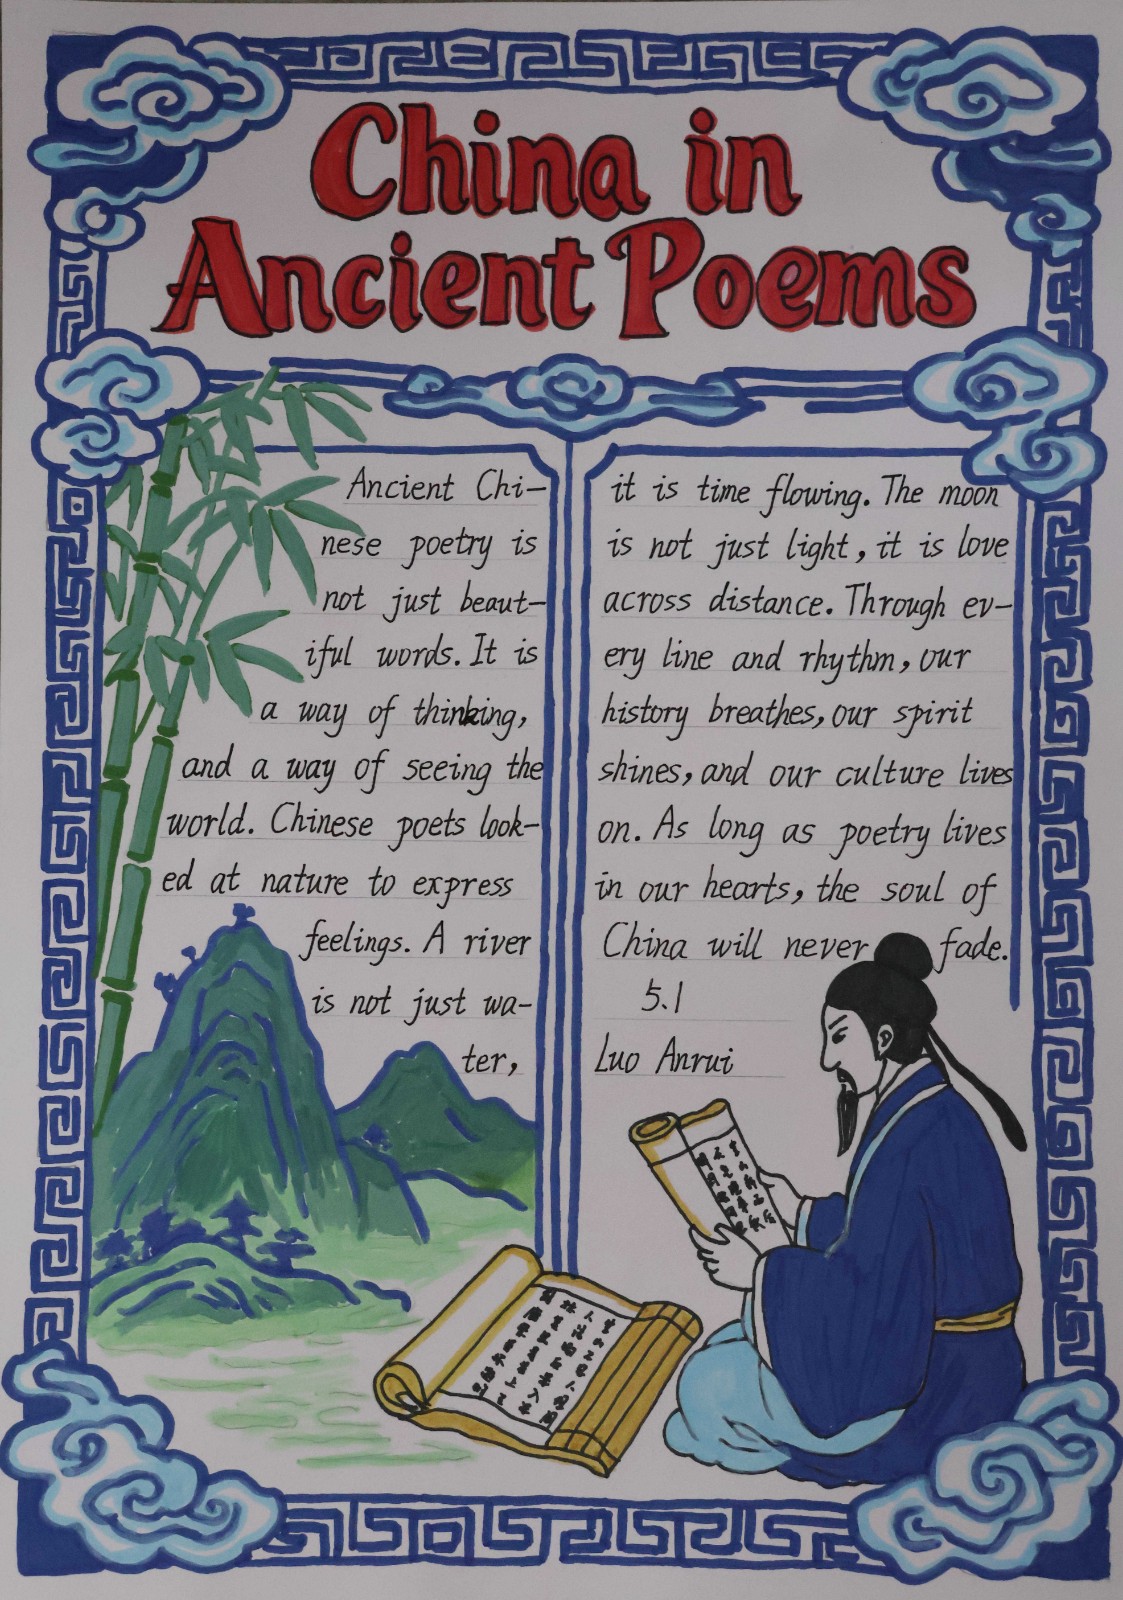 China in
Ancient Poems
Ancient Chi-
nese poetry is
not just beaut-
iful words. It is
a way of thinking,
and a way of seeing the
world. Chinese poets look-
ed at nature to express
feelings. A river
is not just wa-
ter,
it is time flowing. The moon
is not just light, it is love
across distance. Through ev-
ery line and rhythm, our
history breathes, our spirit
shines, and our culture lives
on. As long as poetry lives
in our hearts, the soul of
China will never fade.
5.1
Luo Anrui